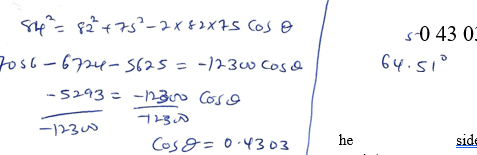 84² = 82² + 75² - 2 x 82 x 75 Cos θ
7056 - 6724 - 5625 = -12300 Cos θ
-5293 = -12300 Cos θ
-12300 -12300
Cos θ = 0.4303
0 43 03
64.51°
he side